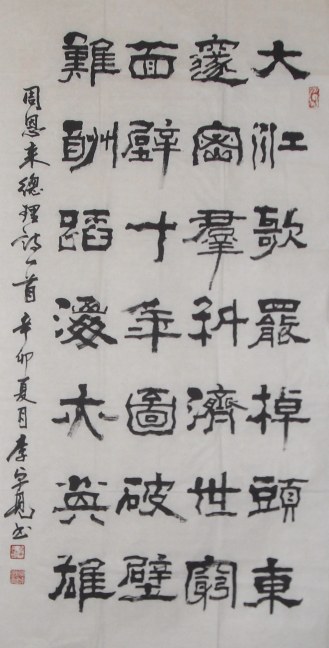 大江歌罷掉頭東
邃密羣科濟世窮
面壁十年圖破壁
難酬蹈海亦英雄
周恩来總理詩一首 辛卯夏月 李 书